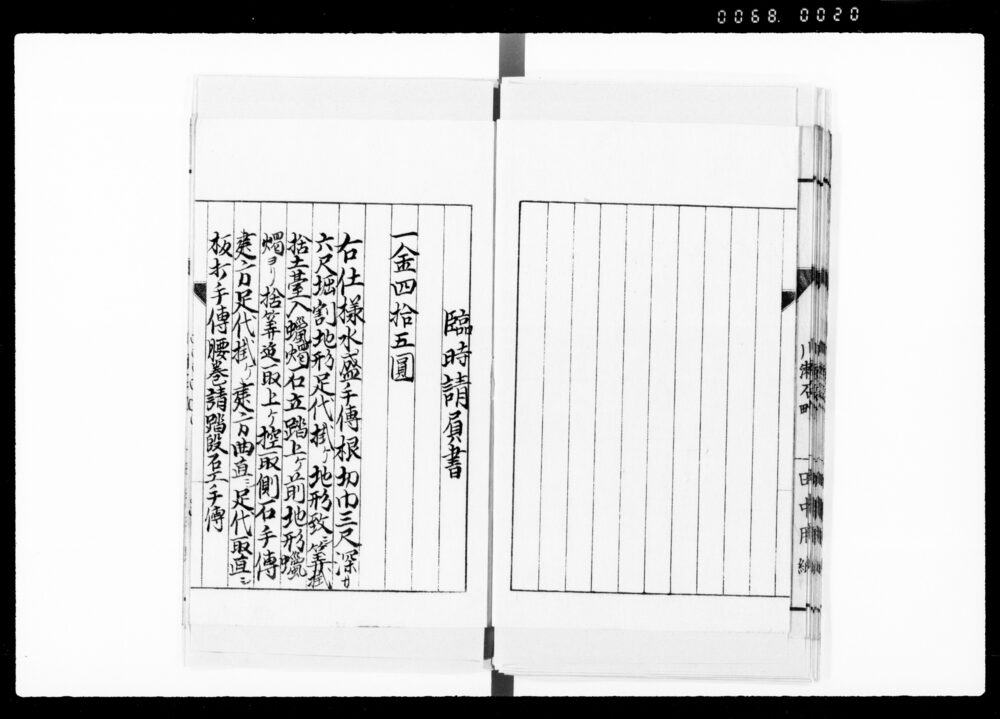 0068. 0020
臨時請負書
一金四拾五圓
右仕様水盛手傳根切巾三尺深サ
六尺堀割地形足代掛ケ地形致シ
捨土臺入蠟燭石立踏上ケ前地形蠟
燭ヨリ捨算返取上ケ控取側石手傳
建方足代掛ケ建方曲直シ足代取直シ
板打手傳腰巻請踏段石手傳
田中用紙